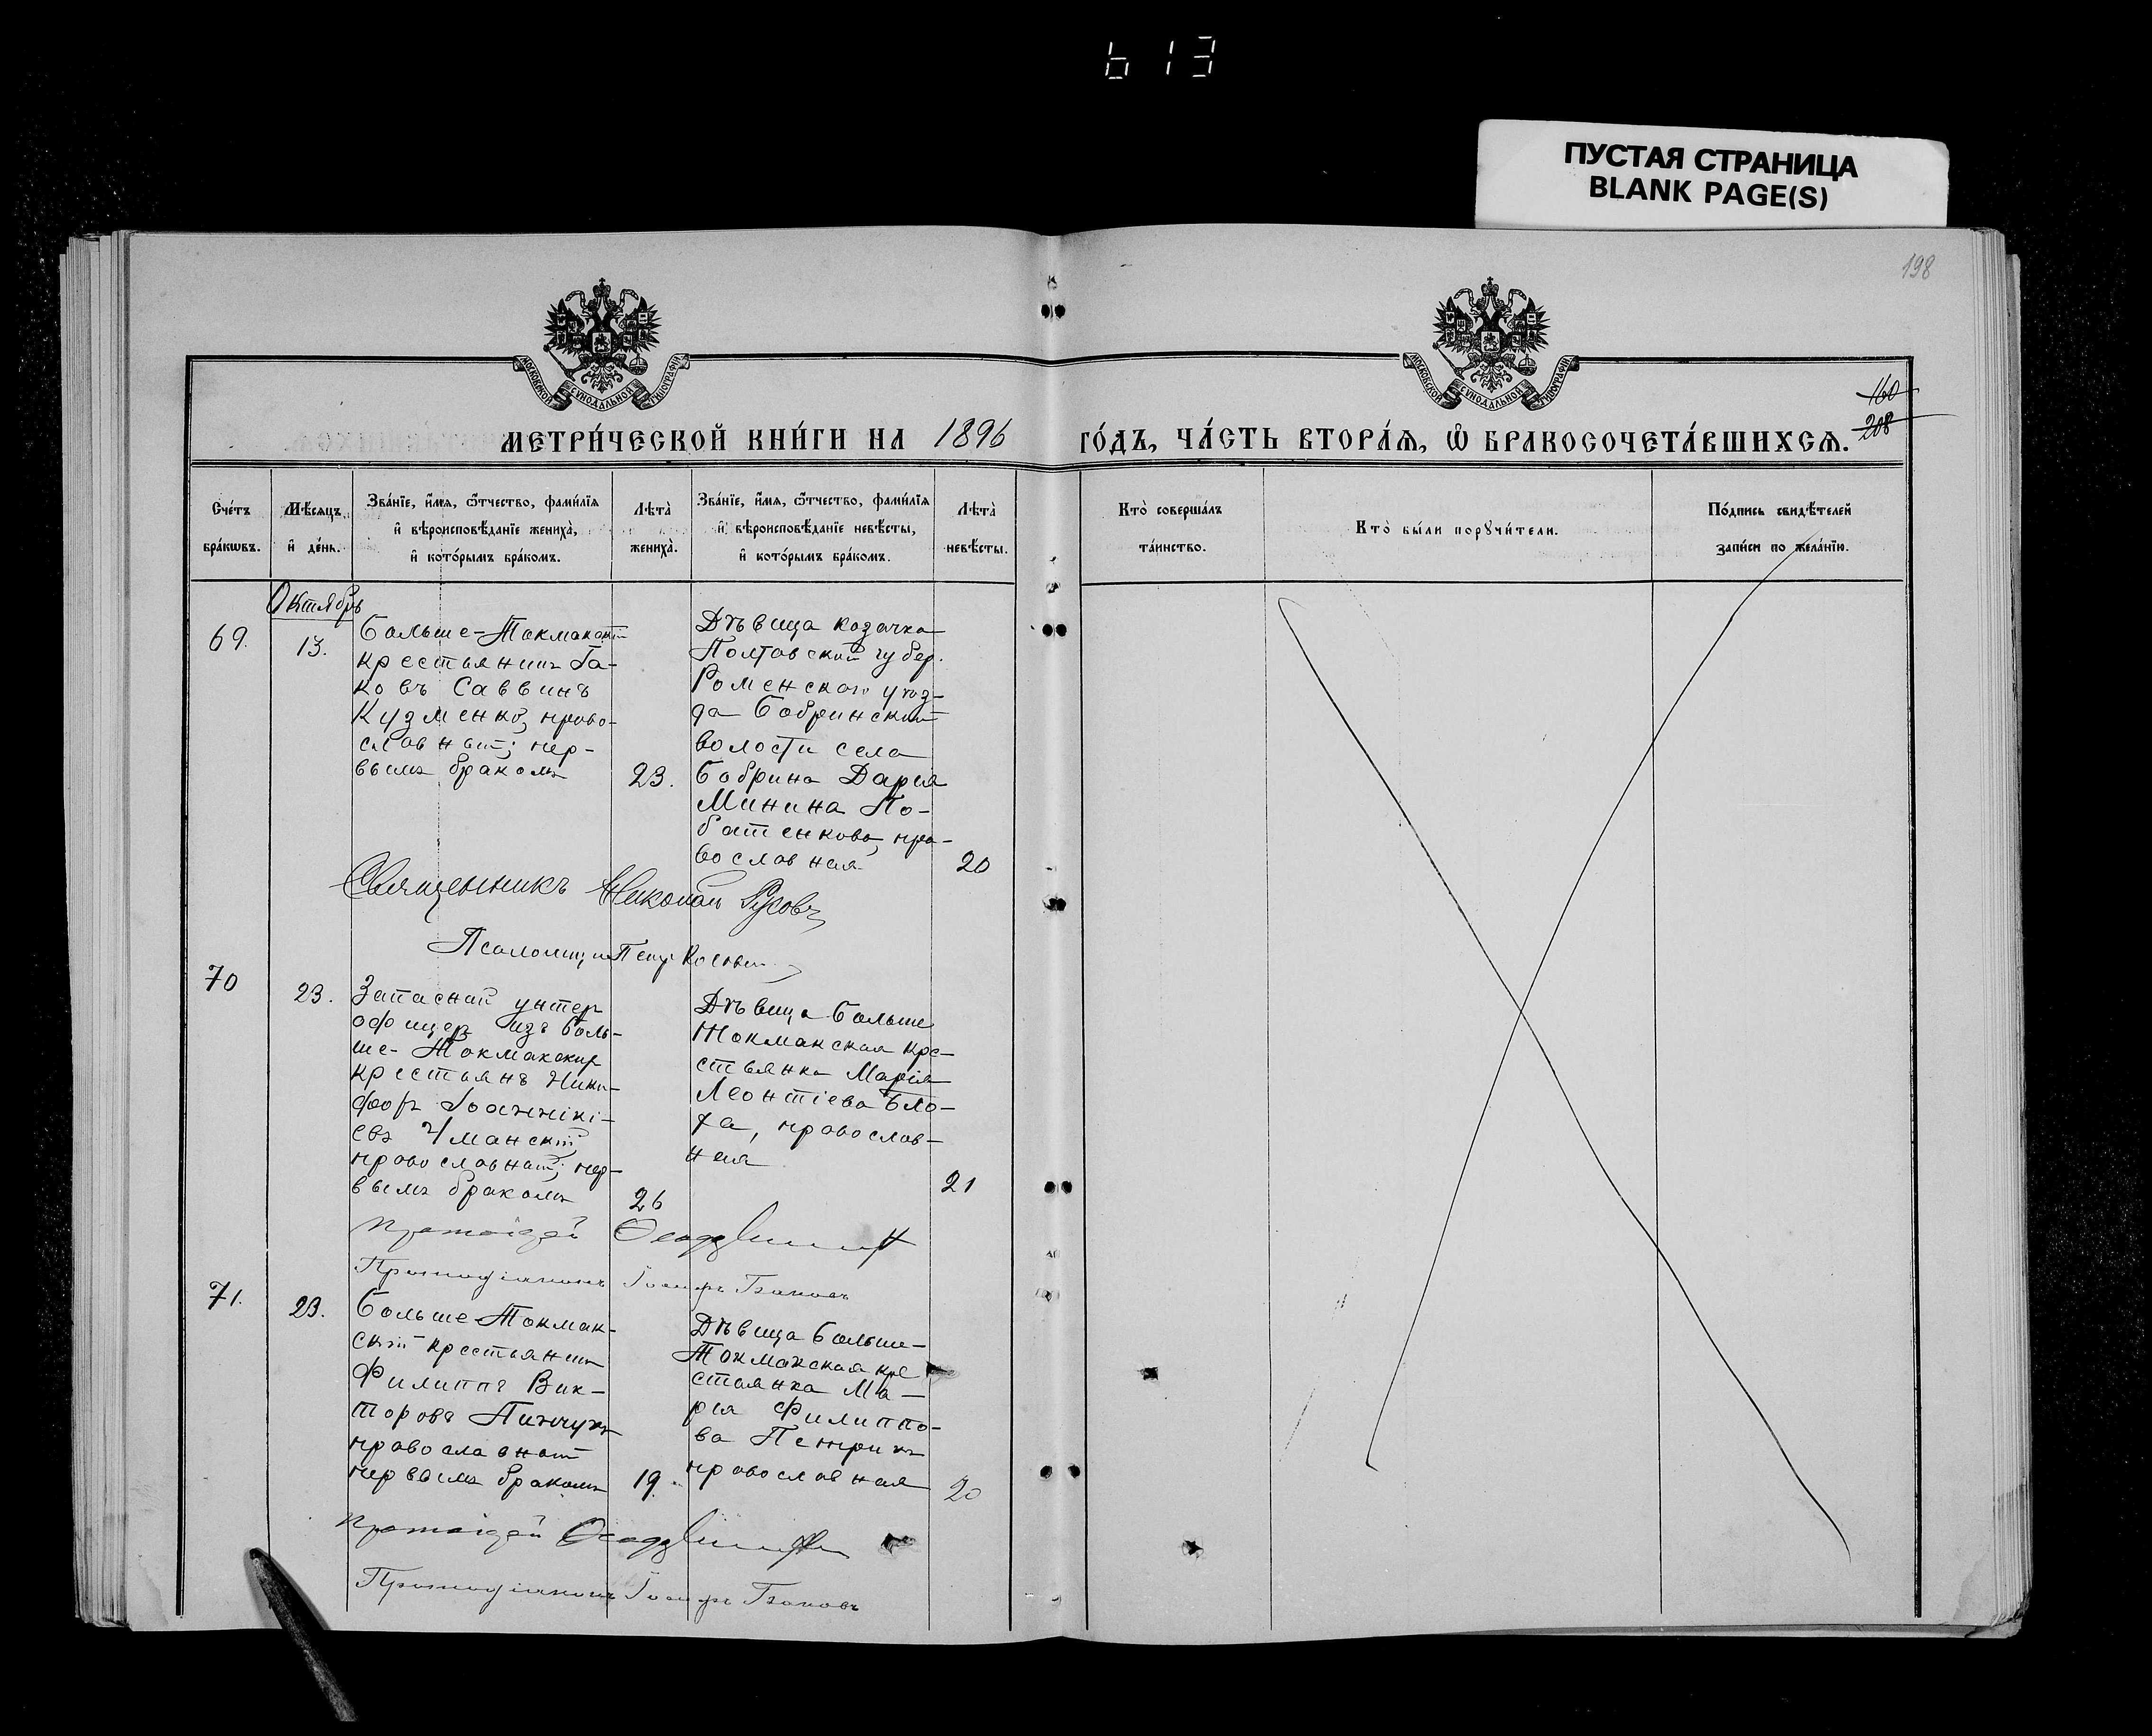 613
ПУСТАЯ СТРАНИЦА
BLANK PAGE(S)
198
МОСКОВСКОЙ СѴНОДАЛЬНОЙ ТИПОГРАФІИ
МОСКОВСКОЙ СѴНОДАЛЬНОЙ ТИПОГРАФІИ
160
208
МЕТРИ́ЧЕСКОЙ КНИ́ГИ НА 1896 ГО́ДЪ, ЧА́СТЬ ВТОРА́Ѧ, Ѡ҆ БРАКОСОЧЕТА́ВШИХСѦ.
Сче́тъ бра́кѡвъ.
Мѣ́сѧцъ и҆ де́нь.
Зва́нїе, и҆́мѧ, ѻ҆́тчество, фами́лїѧ
и҆ вѣроисповѣ́данїе жениха̀,
и҆ кото́рымъ бра́комъ.
Лѣта̀ жениха̀.
Зва́нїе, и҆́мѧ, ѻ҆́тчество, фами́лїѧ
и҆ вѣроисповѣ́данїе невѣ́сты,
и҆ кото́рымъ бра́комъ.
Лѣта̀ невѣ́сты.
Кто̀ соверша́лъ
та́инство.
Кто̀ бы́ли порꙋчи́тели.
По́дпись свидѣ́телей
за́писи по жела́нїю.
Октябрь
69.
13.
Больше-Токмакскій
крестьянинъ Іа-
ковъ Саввинъ
Кузменко, право-
славный; пер-
вымъ бракомъ
23.
Дѣвица козачка
Полтавской губер.
Роменскаго уѣз-
да Бобринской
волости села
Бобрина Дарія
Минина Ло-
батенкова, пра-
вославная
20
Священникъ Николай Русовъ
Псаломщикъ Петръ
70
23.
Запасный унтер
офицеръ изъ боль-
ше-Токмакскихъ
крестьянъ Ники-
форъ Іоанникі-
евъ Уманскій
православный; пер-
вымъ бракомъ
26
Дѣвица больше
Токмакская кре-
стьянка Марія
Леонтіева Бло-
ха, православ-
ная
21
Протоіерей
Протодіаконъ Іосифъ
71.
23.
Больше-Токмак-
скій крестьянинъ
Филиппъ Вик-
торовъ Пинчукъ
православный
первымъ бракомъ
19.
Дѣвица больше-
Токмакская кре
стьянка Ма-
рія Филиппо-
ва Петрикъ
православная
20
Протоіерей
Протодіаконъ Іосифъ